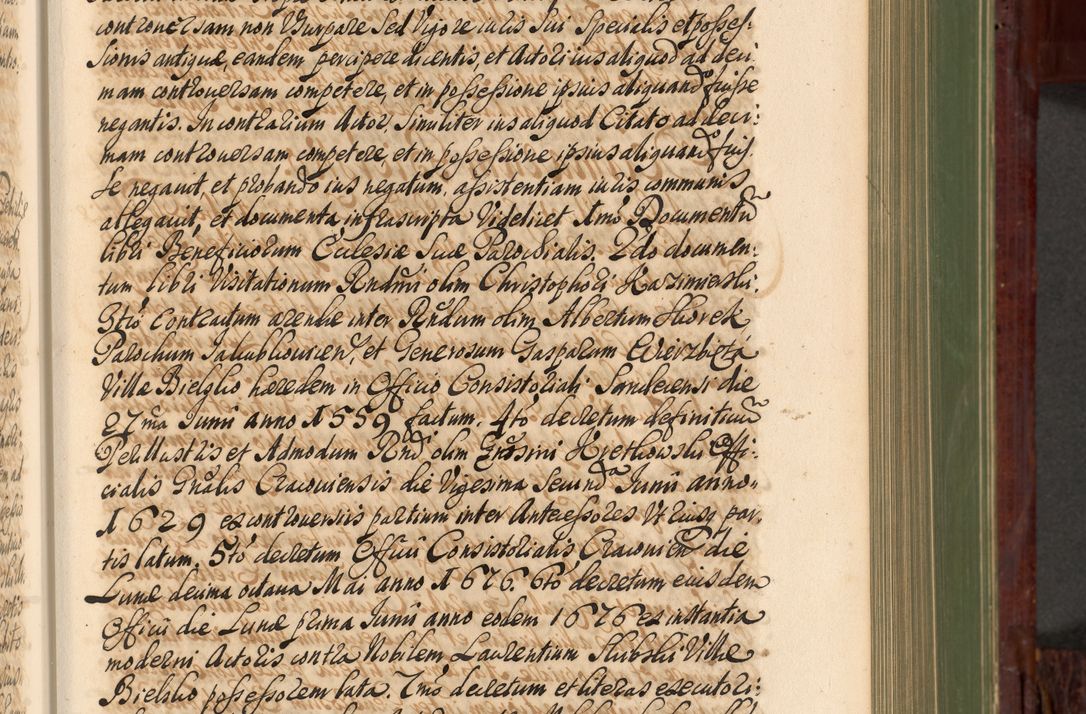 controversam non Vsurpare sed Vigore iuris sui Specialis et posses-
sionis antiquæ, eandem percipere dicentis, et Actori ius aliquod ad deci
mam controversam competere, et in possessione ipsius aliquando fuisse
negantis. In contrarium Actor, similiter ius aliquod Citato ad deci:
mam controuersam competere, et in possessione ipsius aliquando fuis.
se negauit, et probando ius negatum, assistentiam iuris communis
allegauit, et documenta infrascripta Videlicet 1mo Documentū
libri Beneficiorum Ecclesiæ Suæ Parochialis. 2do documen:
tum libri Visitationum Rndmi olim Christophori Kazimierski.
3tio contractum arendæ inter Rndum olim Albertum Skorek
Parochum Jakubkouicen, et Generosum Gasparum Wierzbięta
Villæ Bielsko hæredem in Officio Consistoriali Sandecensi die
27ma Junii anno 1559 factum. 4to decretum definitiuū
Perillustris et Admodum Rndi olim Erasmi Kretkowski Offi:
cialis Gnalis Cracouiensis die Vigesima Secunda Junii anno
1629 ex controuersiis partium inter Antecessores Vtriusq par,
tis latum. 5to decretum Officii Consistorialis Cracouien die
Lunæ decima octaua Mai anno 1676. 6to decretum eiusdem
Officii die Lunæ prima Junii anno eodem 1676 ex instantia
moderni Actoris contra Nobilem Laurentium Slubski Villæ
Bielsko possessorem lata. 7mo decretum et literas executori: